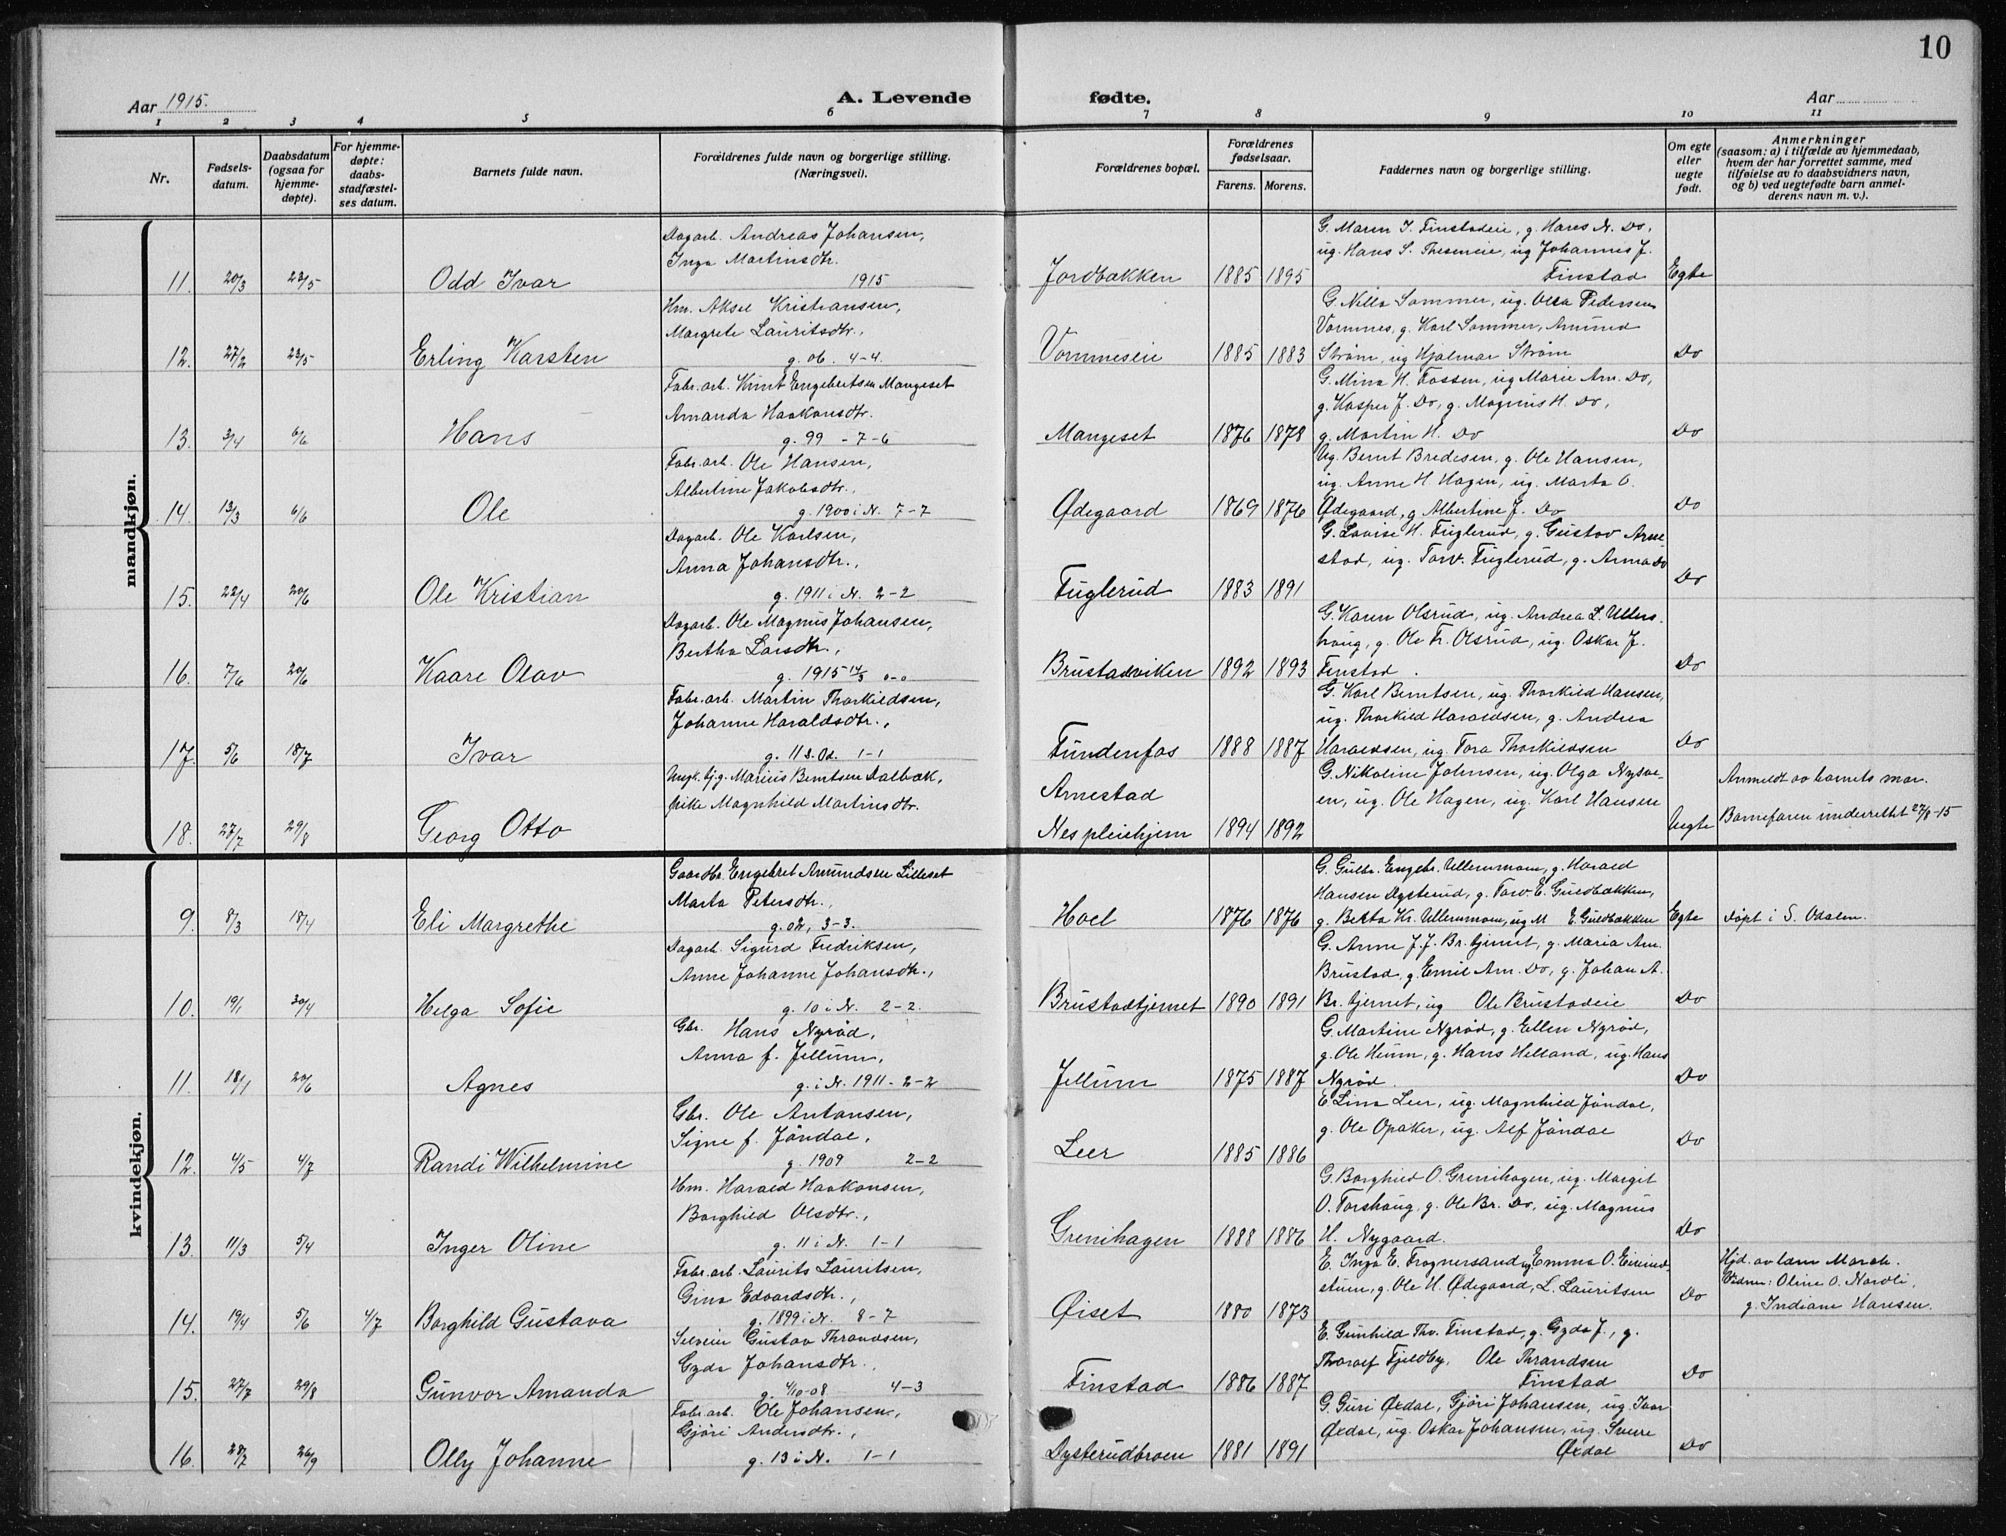 10
Aar 1915.
A. Levende fødte.
Aar
1 2 3 4 5 6 7 8 9 10 11
Nr.
Fødsels-
datum.
Daabsdatum
(ogsaa for
hjemme-
døpte).
For hjemme-
døpte:
daabs-
stadfæstel-
ses datum.
Barnets fulde navn.
Forældrenes fulde navn og borgerlige stilling.
(Næringsvei).
Forældrenes bopæl.
Forældrenes
fødselsaar.
Farens. Morens.
Faddernes navn og borgerlige stilling.
Om egte
eller
uegte
født.
Anmerkninger
(saasom: a) i tilfælde av hjemmedaab,
hvem der har forrettet samme, med
tilføielse av to daabsvidners navn,
og b) ved uegtefødte barn anmel-
derens navn m. v.).
mandkjøn.
11. 20/3 23/5 Odd Ivar
Dagarb. Andreas Johansen,
Inga Martinsdtr.
1915
Jordbakken 1885 1895
G. Maren I. Finstadeie, g. Hans N. Do,
ug. Hans S. Thesineie, ug Johannes J.
Finstad
Egte
12. 27/2 23/5 Erling Karsten
Hm. Aksel Kristiansen,
Margrete Lauritsdtr.,
g. 06. 4-4.
Vommeseie 1885 1883
G. Nilla Sommer, ug. Olea Pedersen
Vormnes, g. Karl Sommer, Amund
Strøm, ug Hjalmar Strøm
Do
13. 3/4 6/6 Hans
Fabr.arb. Knut Engebretsen Mangeset
Amanda Haakonsdtr.
g. 99 - 7-6
Mangeset 1876 1878
G. Mina H. Fossen, ug Marie Am. Do,
g. Kasper J. Do, g. Magnus H. Do,
g. Martin H. Do
Do
14. 13/3 6/6 Ole
Fabr.arb. Ole Hansen,
Albertine Jakobsdtr.,
g. 1900 i N. 7-7
Ødegaard 1869 1876
Ug. Bernt Bredesen, g. Ole Hansen,
ug. Anne H. Hagen, ug. Marta O.
Ødegaard, g Albertine J. Do
Do
15. 22/4 20/6 Ole Kristian
Dagarb. Ole Karlsen,
Anna Johansdtr.,
g. 1911 i N. 2-2
Fuglerud 1883 1891
G. Lovise H. Fuglerud, g. Gustav Arne-
stad, ug. Torv. Fuglerud, g. Anna Do
Do
16. 7/6 20/6 Kaare Olav
Dagarb. Ole Magnus Johansen,
Bertha Larsdtr.,
g. 1915 14/3 0-0
Brustadviken 1892 1893
G. Karen Olsrud, ug. Andrea L. Ullers-
haug, g. Ole Fr. Olsrud, ug. Oskar J.
Finstad.
Do
17. 5/6 18/7 Ivar
Fabr. arb. Martin Thorkildsen,
Johanne Haraldsdtr.,
g. 11 S. Od. 1-1
Fundenfos 1888 1887
G. Karl Berntsen, ug. Thorkild Hansen,
ug. Thorkild Haraldsen, g. Andrea
Haraldsen, ug. Tora Thorkildsen
Do
18. 27/7 29/8 Georg Otto
Ungk. tj.g. Marius Berntsen Dalbæk,
pike Magnhild Martinsdtr.
Arnestad
Nes pleiehjem 1894 1892
G. Nikoline Johnsen, ug. Olga Nysve-
en, ug. Ole Hagen, ug. Karl Hansen
Uegte
Anmeldt av barnets mor.
Barnefaren underrettet 27/8-15
kvindekjøn.
9. 8/3 18/4 Eli Margrethe
Gaardbr. Engebret Amundsen Lilleset
Marta Petersdtr.,
g. 02, 3-3.
Hoel 1876 1876
G. Gulbr. Engebr. Ullernmoen, g. Harald
Hansen Dysterud, g. Torv. E. Guldbakken,
g. Berta Kr. Ullernmoen, ug M E. Guldbakken
Egte
Døpt i S. Odalen.
10. 19/1 30/4 Helga Sofie
Dagarb. Sigurd Fredriksen,
Anne Johanne Johansdtr.,
g. 10 i N. 2-2.
Brustadtjernet 1890 1891
G. Anne J. J. Br. tjernet, g. Maria Am.
Brustad, g. Emil Am. Do, g. Johan A.
Br. tjernet, ug Ole Brustadeie
Do
11. 18/1 20/6 Agnes
Gbr. Hans Nyrød,
Anna f. Jellum,
g. i N. 1911 - 2-2
Jellum 1875 1887
G. Martine Nyrød, g. Ellen Nyrød,
g. Ole Heum, g. Hans Helland, ug. Hans
Nyrød.
Do
12. 4/5 4/7 Randi Wilhelmine
Gbr. Ole Antonsen,
Signe f. Jøndal,
g. 1909 2-2
Leer 1885 1886
E Lina Leer, ug. Magnhild Jøndal,
g. Ole Opaker, ug. Alf Jøndal
Do
13 11/3 5/4 Inger Oline
Hm. Harald Haakonsen,
Borghild Olsdtr.,
g. 11 i N. 1-1
Grenihagen 1888 1886
G. Borghild O. Grenihagen, ug. Margit
O. Torshaug, g. Ole Br. Do, ug. Magnus
H. Nygaard.
Do
14. 19/4 5/6 4/7 Borghild Gustava
Fabr. arb. Laurits Lauritsen,
Gina Edvardsdtr.,
g. 1899 i N. 8-7
Øiset 1880 1873
E. Inga E. Frognersand, Emma O. Eiund-
stuen, g. Ole H. Ødegaard, L. Lauritsen
Do
Hjd. av
Vidner: Oline O. Narvli,
g. Indiane Hansen.
15. 27/7 29/8 Gunvor Amanda
Selveier Gustav Thrandsen,
Gyda Johansdtr.,
g. 4/10-08 4-3
Finstad 1886 1887
E. Gunhild Thv. Finstad, g. Gyda J., g.
Thoralf Fjeldby. Ole Thrandsen
Finstad
Do
16. 28/7 26/9 Olly Johanne
Fabr. arb. Ole Johansen,
Gjøri Andersdtr.,
g. 13 i N. 1-1
Dysterudbroen 1881 1891
G. Guri Øxdal, Gjøri Johansen, ug. Ivar
Øxdal, ug. Oskar Johansen, ug. Sverre
Øxdal
Do